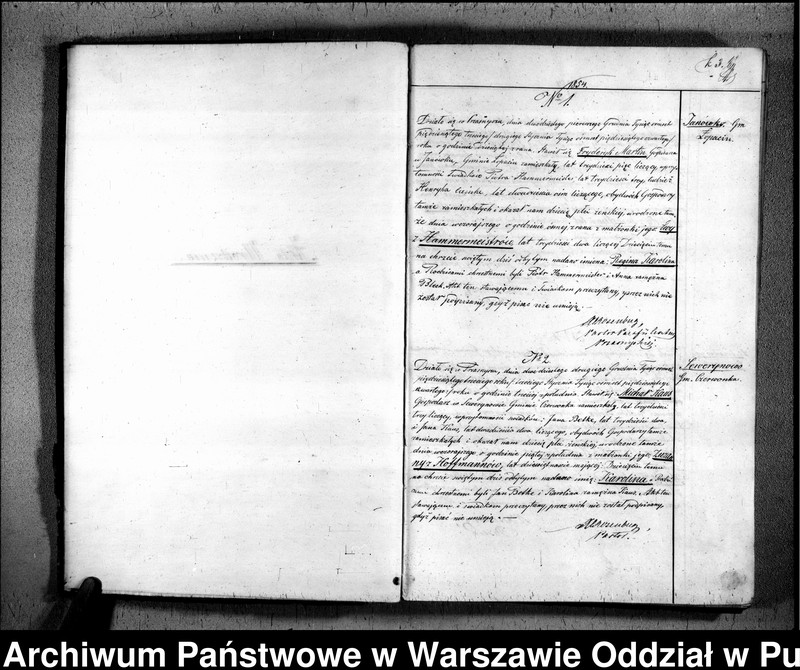 1854.
No 1.
Janowka. Gm
Działo się w Przasnyszu, dnia dwudziestego pierwszego Grudnia Tysiąc ośmset
pięćdziesiątego trzeciego / drugiego Stycznia Tysiąc ośmset pięćdziesiątego czwartego /
roku o godzinie dziewiątej zrana. Stawił się Fryderyk Martin, Gospodarz
w Janówku, Gminie zamieszkały, lat trzydzieści pięć liczący, w przy-
tomności Świadków Piotra Hammermeister lat trzydzieści trzy, tudzież
Henryka lat dwadzieścia ośm liczącego, obydwóch Gospodarzy
tamże zamieszkałych i okazał nam dziecię płci żeńskiej, urodzone tam-
że dnia wczorajszego o godzinie ósmej zrana z małżonki jego Ewy
z Hammermeistrów lat trzydzieści dwa liczącej. Dziecięciu temu
na chrzcie świętym dziś odbytym nadano imiona: Regina Karolina
a Rodzicami chrzestnemi byli Piotr Hammermeister i Anna zamężna
Block. Akt ten stawającemu i świadkom przeczytany, przez nich nie
został podpisany, gdyż pisać nie umieją.
Rosenberg,
Pastor
No 2.
Sewerynowo
Gm. Czerwonka.
Działo się w Przasnyszu, dnia dwudziestego drugiego Grudnia Tysiąc ośmset
pięćdziesiątego trzeciego roku / trzeciego Stycznia Tysiąc ośmset pięćdziesiątego
czwartego / roku o godzinie trzeciej z południa. Stawił się Michał Haas
Gospodarz w Sewerynowie Gminie Czerwonka zamieszkały, lat trzydzieści
trzy liczący, w przytomności świadków: Jana Botke, lat trzydzieści dwa
i Jana lat dwadzieścia dwa liczącego, obydwóch Gospodarzy tamże
zamieszkałych i okazał nam dziecię płci żeńskiej urodzone tamże
dnia wczorajszego o godzinie piątej z południa z małżonki jego Zuzan-
ny z Hoffmannów, lat dziewiętnaście mającej. Dziecięciu temu
na chrzcie świętym dziś odbytym nadano imię: Karolina a Rodzi-
cami chrzestnemi byli Jan Botke i Karolina zamężna Akt ten
stawającemu i świadkom przeczytany, przez nich nie został podpisany,
gdyż pisać nie umieją.
Rosenberg,
Pastor.
Archiwum Państwowe w Warszawie Oddział w Pu